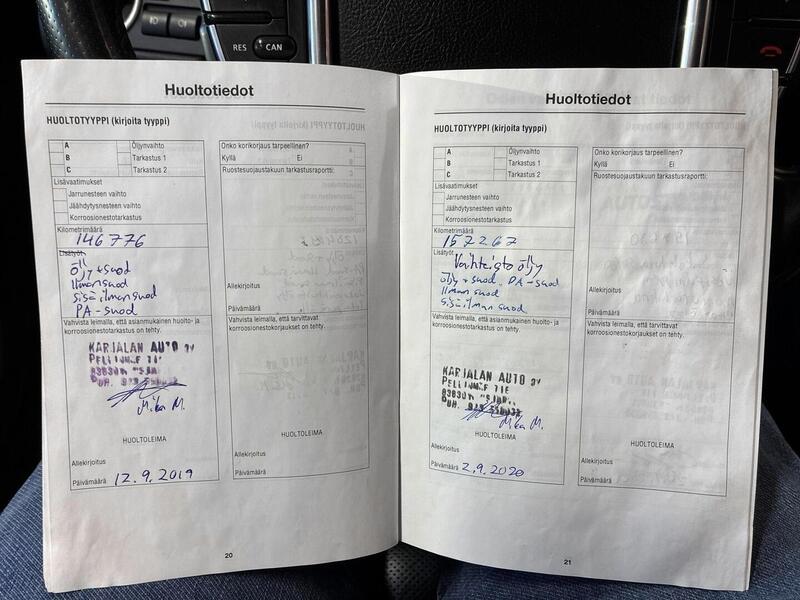 RES
CAN
Huoltotiedot
HUOLTOTYYPPI (kirjoita tyyppi)
A Öljynvaihto
B Tarkastus 1
C Tarkastus 2
Lisävaatimukset
Jarrunesteen vaihto
Jäähdytysnesteen vaihto
Korroosionestotarkastus
Kilometrimäärä
146776
Lisätyöt
öljy + suod
Ilmansuod
sisäilmansuod
PA-suod
Vahvista leimalla, että asianmukainen huolto- ja
korroosionestotarkastus on tehty.
KARJALAN AUTO
Mika M.
HUOLTOLEIMA
Allekirjoitus
Päivämäärä 12.9.2019
Onko korikorjaus tarpeellinen?
Kyllä Ei
Ruostesuojaustakuun tarkastusraportti:
Allekirjoitus
Päivämäärä
Vahvista leimalla, että tarvittavat
korroosionestokorjaukset on tehty.
HUOLTOLEIMA
Allekirjoitus
Päivämäärä
20
Huoltotiedot
HUOLTOTYYPPI (kirjoita tyyppi)
A Öljynvaihto
B Tarkastus 1
C Tarkastus 2
Lisävaatimukset
Jarrunesteen vaihto
Jäähdytysnesteen vaihto
Korroosionestotarkastus
Kilometrimäärä
157267
Lisätyöt
Vaihteisto öljy
öljy + suod. PA-suod
Ilmansuod
sisäilmansuod
Vahvista leimalla, että asianmukainen huolto- ja
korroosionestotarkastus on tehty.
KARJALAN AUTO
TIE
Mika M.
HUOLTOLEIMA
Allekirjoitus
Päivämäärä 2.9.2020
Onko korikorjaus tarpeellinen?
Kyllä Ei
Ruostesuojaustakuun tarkastusraportti:
Allekirjoitus
Päivämäärä
Vahvista leimalla, että tarvittavat
korroosionestokorjaukset on tehty.
HUOLTOLEIMA
Allekirjoitus
Päivämäärä
21